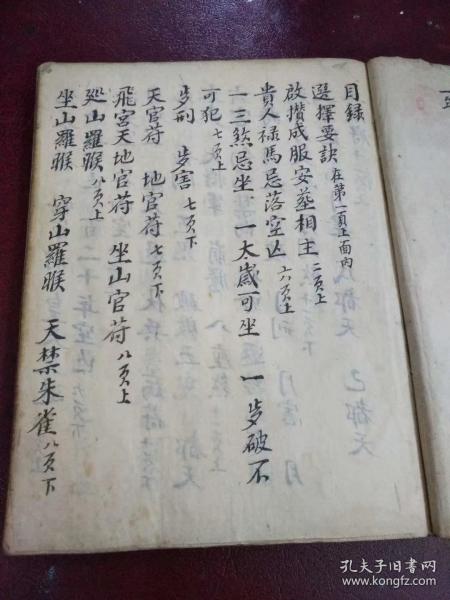 目録
選擇要訣 在第一頁上面內
啟攢成服安葬相主 二頁上
貴人禄馬忌落空亡 六頁上
一三煞忌坐 一太歲可坐 一歩破不
可犯 七頁上
歩刑 歩害 七頁下
天官荷 地官荷 七頁下
飛宮天地官荷 坐山官荷 八頁上
廵山羅睺 八頁上
坐山羅睺 穿山羅睺 天禁朱雀 八頁下
孔夫子旧书网
www.kongfz.com